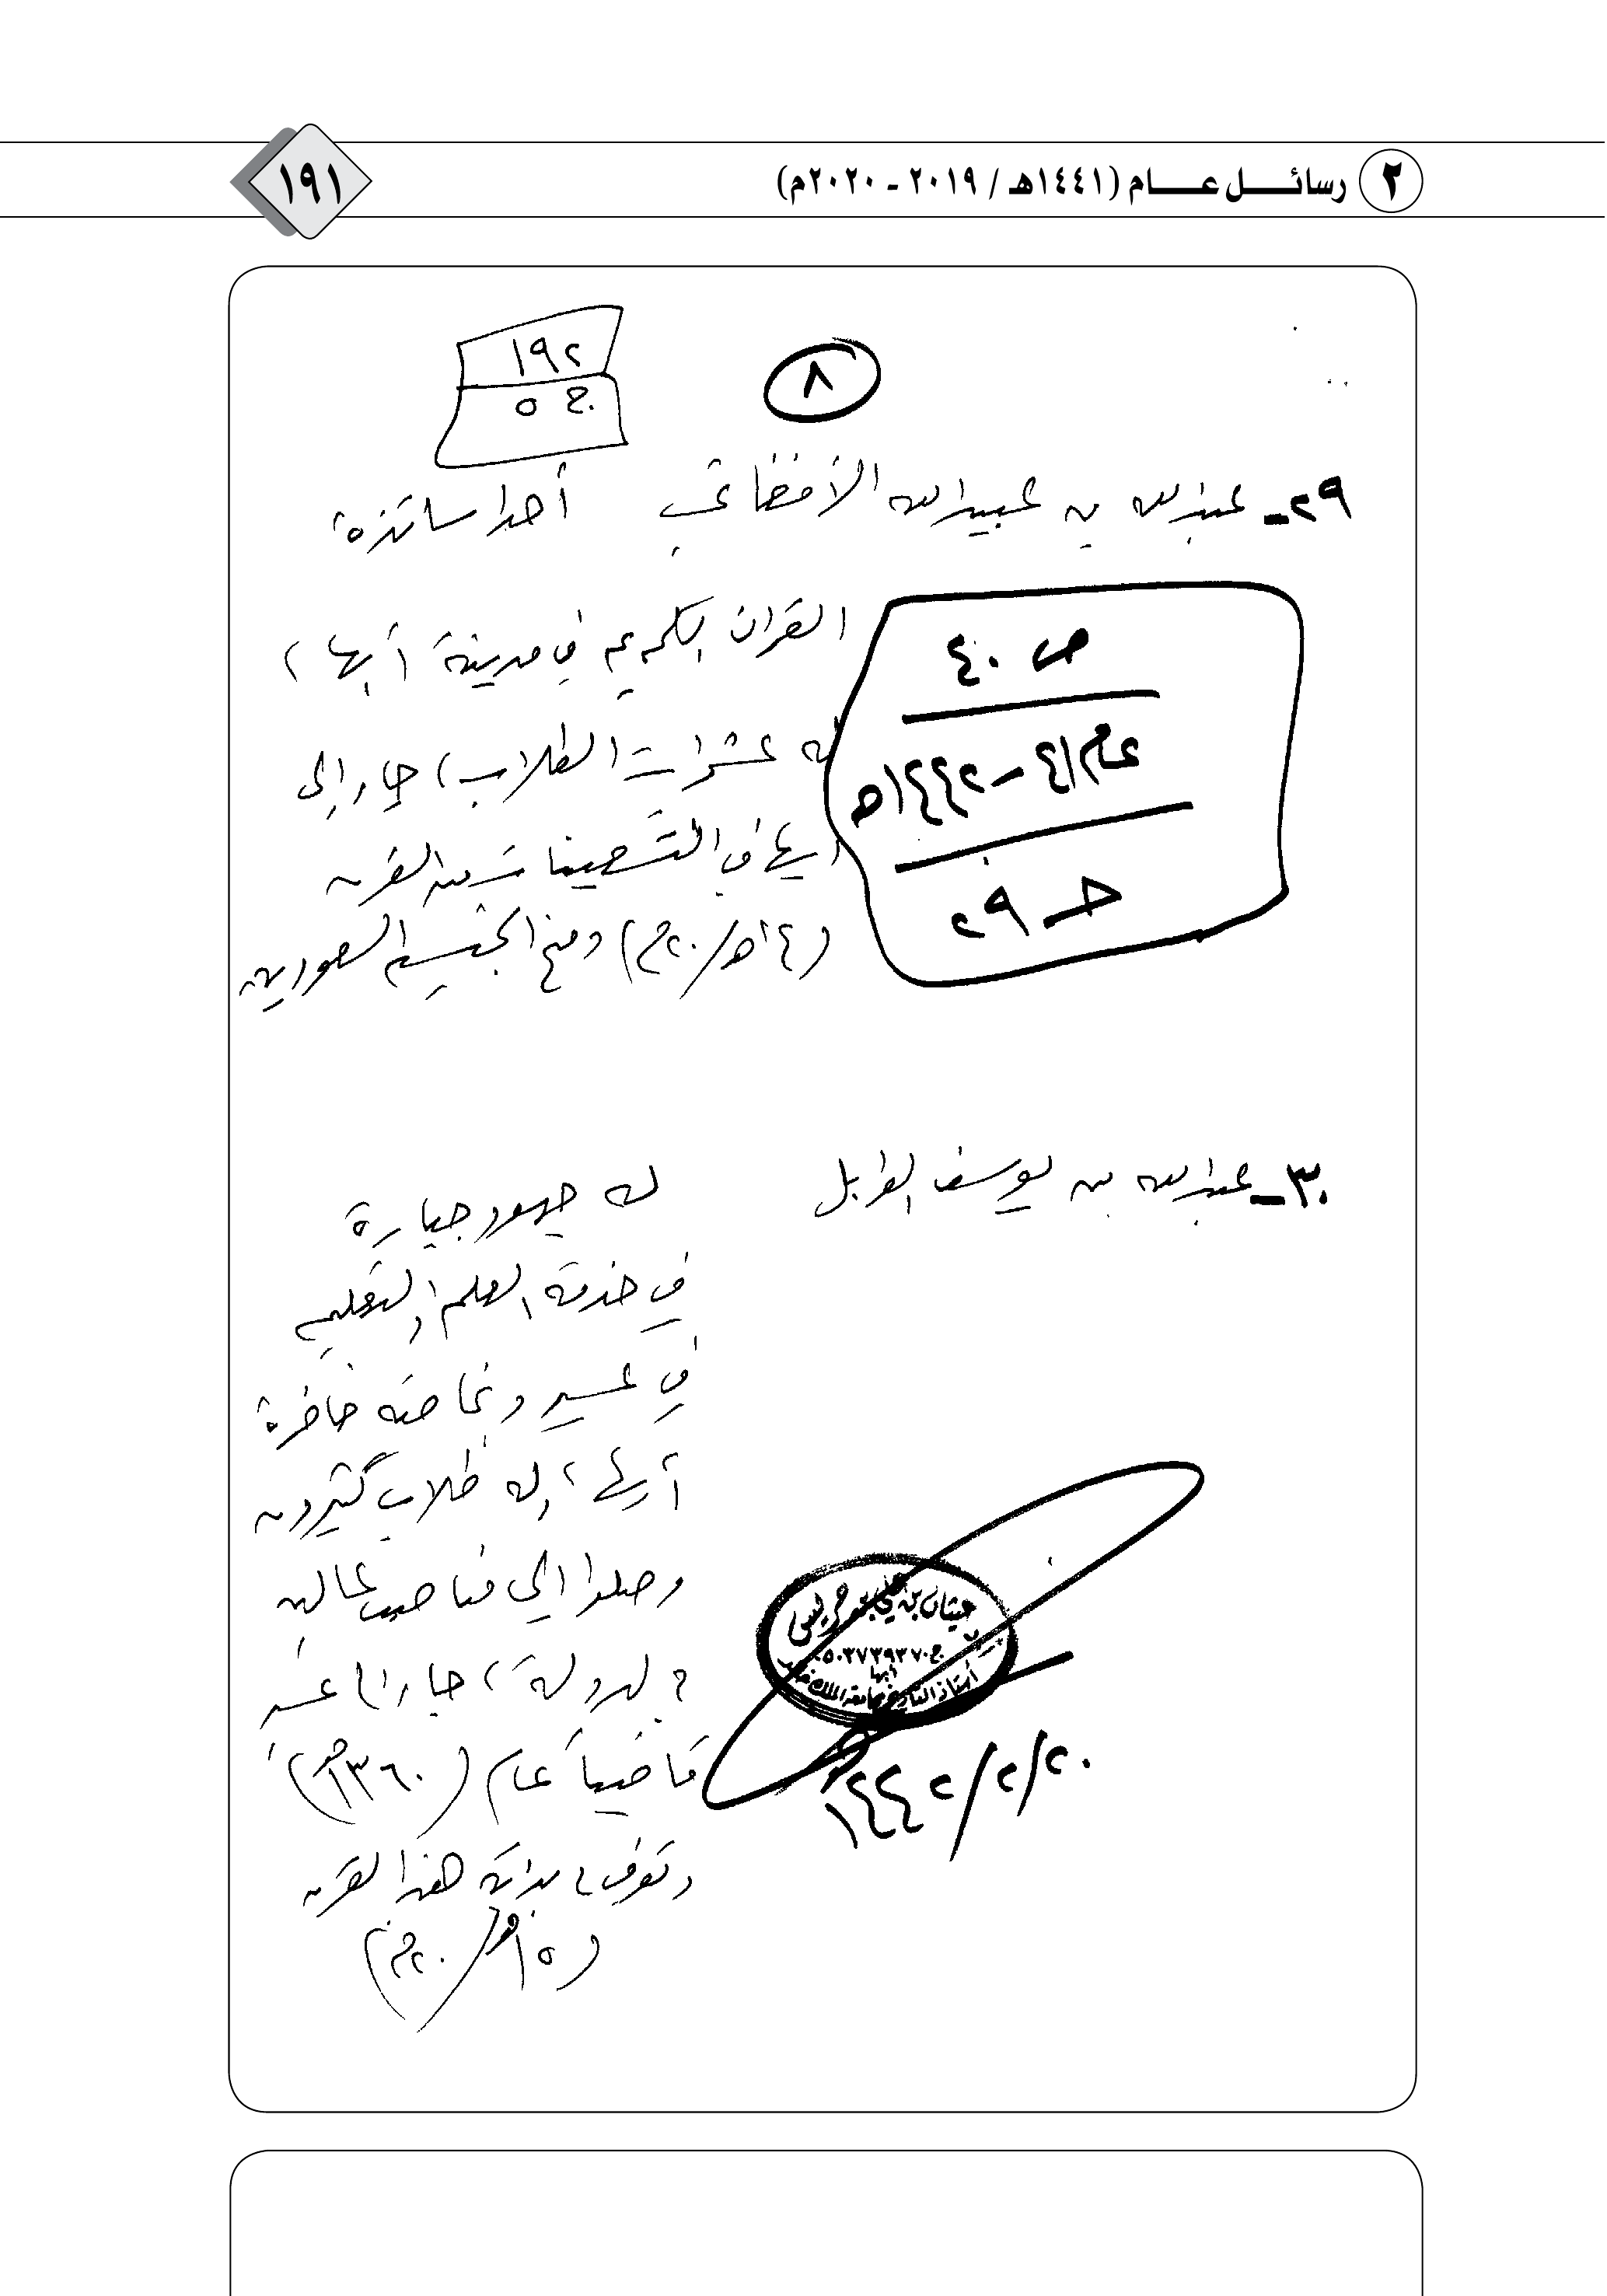 ٢ رسائل عام (١٤٤١هـ / ٢٠١٩ - ٢٠٢٠م)
١٩١
٨
١٩٢
ج ٥
٢٩- عبدالله بن عبيدالله الأفغاني أحد اساتذة
القران الكريم في مدينة أبها ،
له عشرات الطلاب، جاء إلى
أبها في التسعينات من القرن
(١٤هـ/٢٠م) ومنح الجنسيه السعودية
ص ٤٠
عام ٤١-١٤٤٢هـ
حـ ٢٩
٣٠- عبدالله بن يوسف الوابل له جهود جبارة
في خدمة العلم والتعليم
في عسير وبخاصة حاضرة
أبها ، وله طلاب كثيرون
وصلوا إلى مناصب عالية
في الدولة ، جاء إلى عسير
قاضياً عام (١٣٦٠هـ)
وتوفي في بداية هذا القرن
(١٥هـ/٢٠م)
غيثان بن علي بن جريس
ج٠٥٠٣٧٣٩٣٧٠
أبها
أستاذ التاريخ بجامعة الملك خالد
١٤٤٢/٢/٢٠